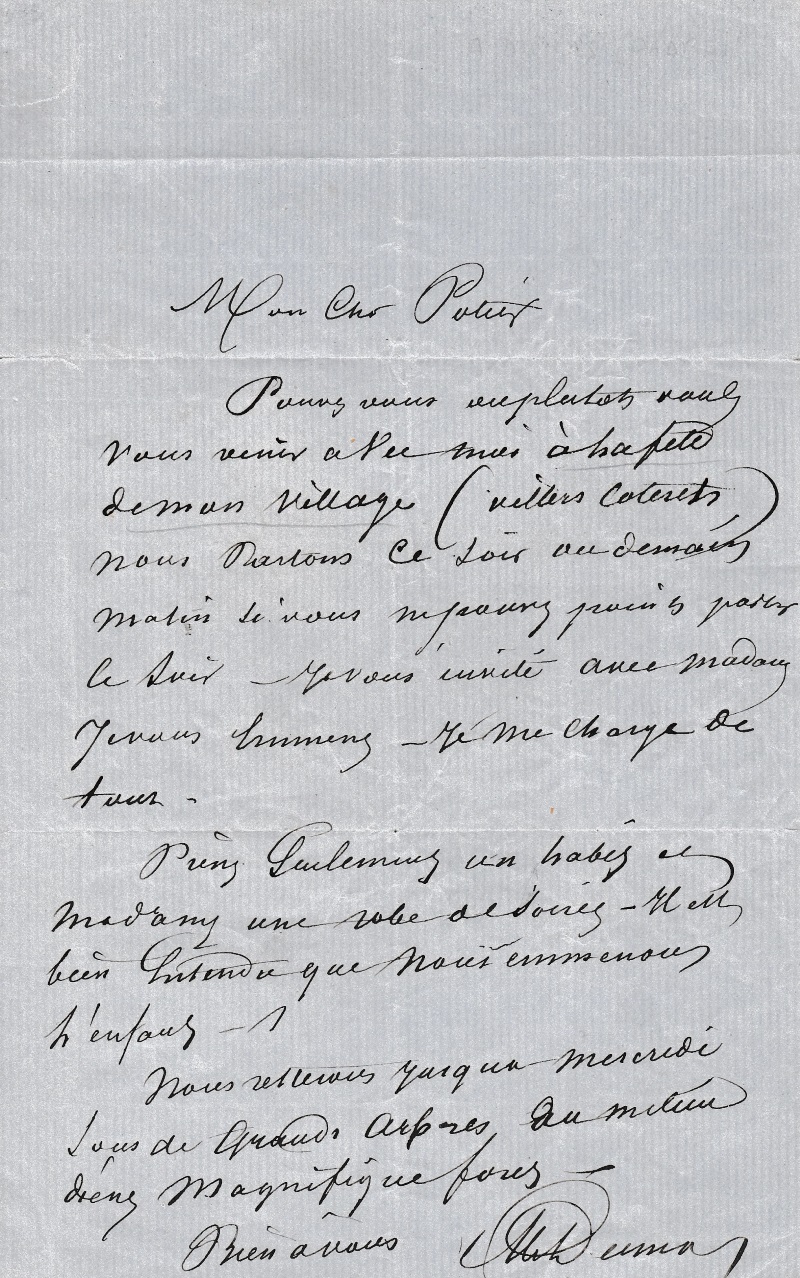 Mon Cher Potier
Pouvez vous ou plutot voulez
vous venir avec moi à la fete
de mon village (villers Coterets)
nous Partons Ce soir ou demain
matin si vous ne pouvez point partir
Ce soir – Je vous invite avec madame
Je vous emmene – Je me charge de
tout –
Prenez Seulement un habit et
madame une robe de soirée – Il est
bien Entendu que nous emmenons
l'enfant –
Nous resterons jusqu'a mercredi
sous de Grands Arbres au milieu
d'une Magnifique foret –
Bien à vous Alex Dumas